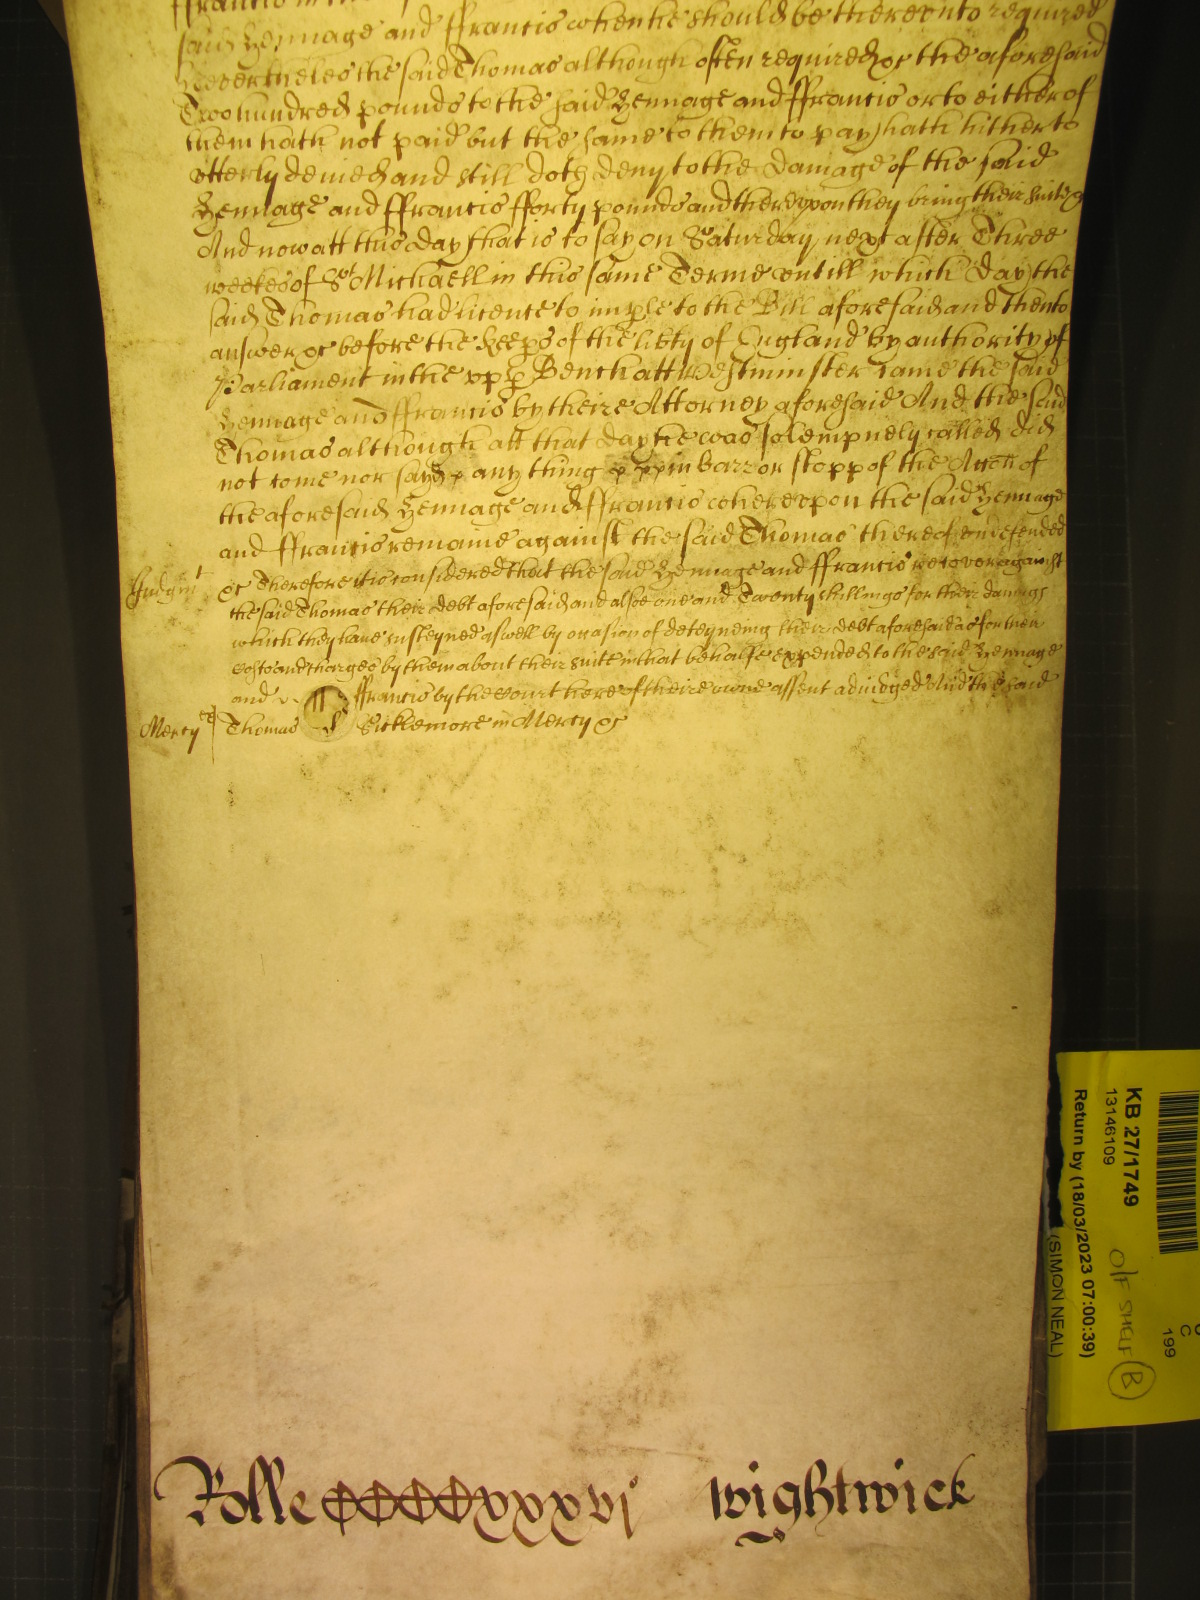 said Hennage and ffrancis when hee should be thereunto required
Neverthelesse the said Thomas although often required &c the aforesaid
Two hundred pounds to the said Hennage and ffrancis or to either of
them hath not paid but the same to them to pay hath hitherto
utterly denied and still doth deny to the damage of the said
Hennage and ffrancis fforty pounds and thereupon they bring their suite &c
And now att this day that is to say on Saturday next after Three
weekes of St Michaell in this same Terme untill which day the
said Thomas had licence to imple to the Bill aforesaid and then to
answer &c before the Keeps of the libty of England by authority of
Parliament in the upp Bench att Westminster came the said
Hennage and ffrancis by theire Attorney aforesaid And the said
Thomas although att that day hee was solempnely called did
not come nor any thing in barr or stopp of the Accon of
the aforesaid Hennage and ffrancis whereupon the said Hennage
and ffrancis remaine against the said Thomas thereof undefended
Judgmt &c Therefore itis considered that the said Hennage and ffrancis recover against
the said Thomas their debt aforesaid and alsoe one and Twenty shillings for their damags
which they have susteyned aswell by occasion of deteyneing their debt aforesaid as for their
costs and charges by them about their suite in that behalfe expended to the said Hennage
and ffrancis by the Court here of theire owne assent adiudged And the said
Mercy Thomas Sicklemore in Mercy &c
Rolle CCCCxxxvj Wightwick
KB 27/1749
13146109
Return by (18/03/2023 07:00:39)
(SIMON NEAL)
O/F SHELF B
C
199